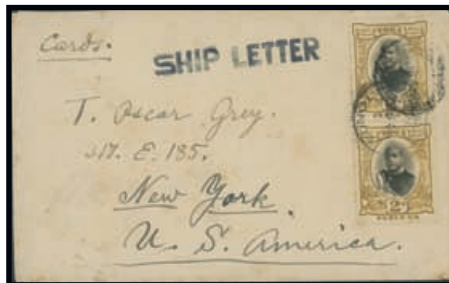 Cards.
SHIP LETTER
TONGA
T. Oscar Grey.
317. E. 185.
New York.
U. S. America.
2